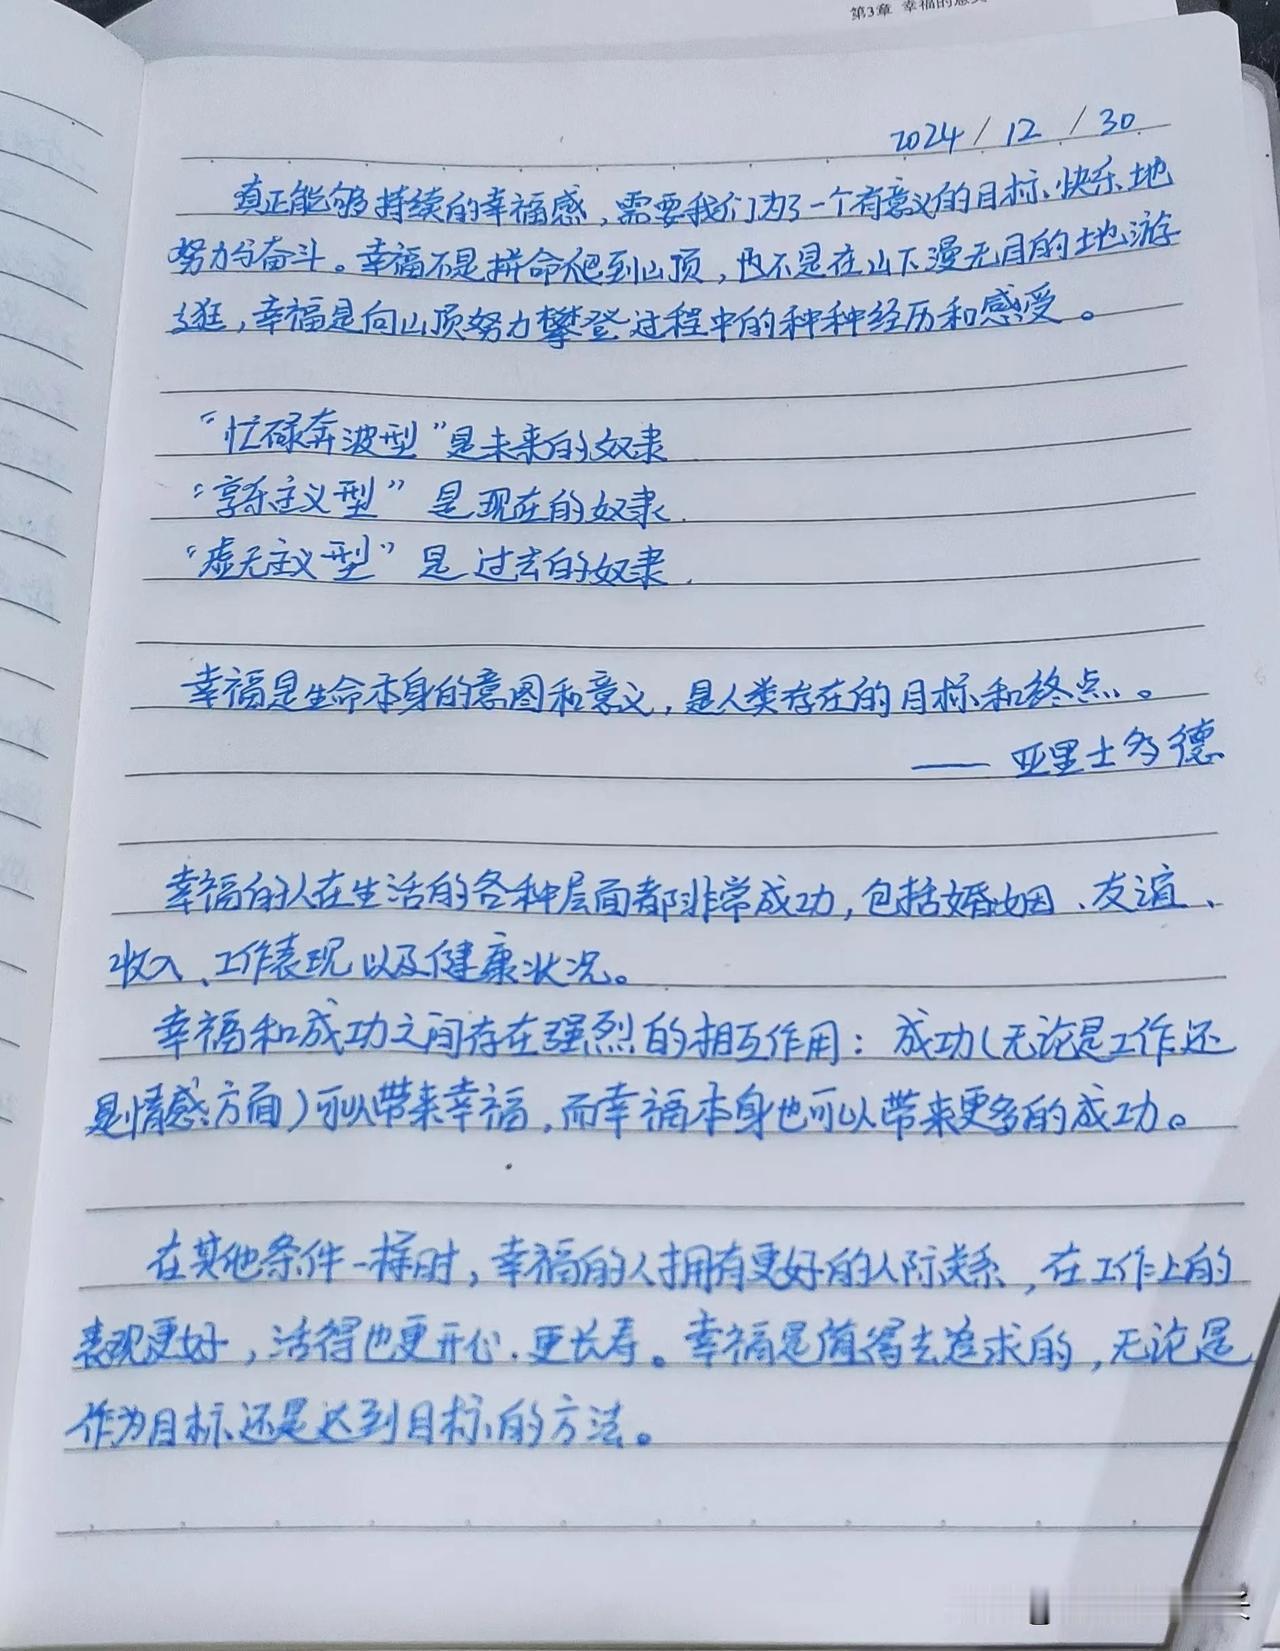 第3章 幸福的意义
2024/12/30
真正能够持续的幸福感，需要我们为了一个有意义的目标、快乐地
努力与奋斗。幸福不是拼命爬到山顶，也不是在山下漫无目的地游
逛，幸福是向山顶努力攀登过程中的种种经历和感受。
“忙碌奔波型”是未来的奴隶
“享乐主义型”是现在的奴隶.
“虚无主义型”是过去的奴隶.
幸福是生命本身的意图和意义，是人类存在的目标和终点。
——亚里士多德
幸福的人在生活的各种层面都非常成功，包括婚姻、友谊、
收入、工作表现以及健康状况。
幸福和成功之间存在强烈的相互作用：成功（无论是工作还
是情感方面）可以带来幸福，而幸福本身也可以带来更多的成功。
在其他条件一样时，幸福的人拥有更好的人际关系，在工作上的
表现更好，活得也更开心、更长寿。幸福是值得去追求的，无论是
作为目标还是达到目标的方法。